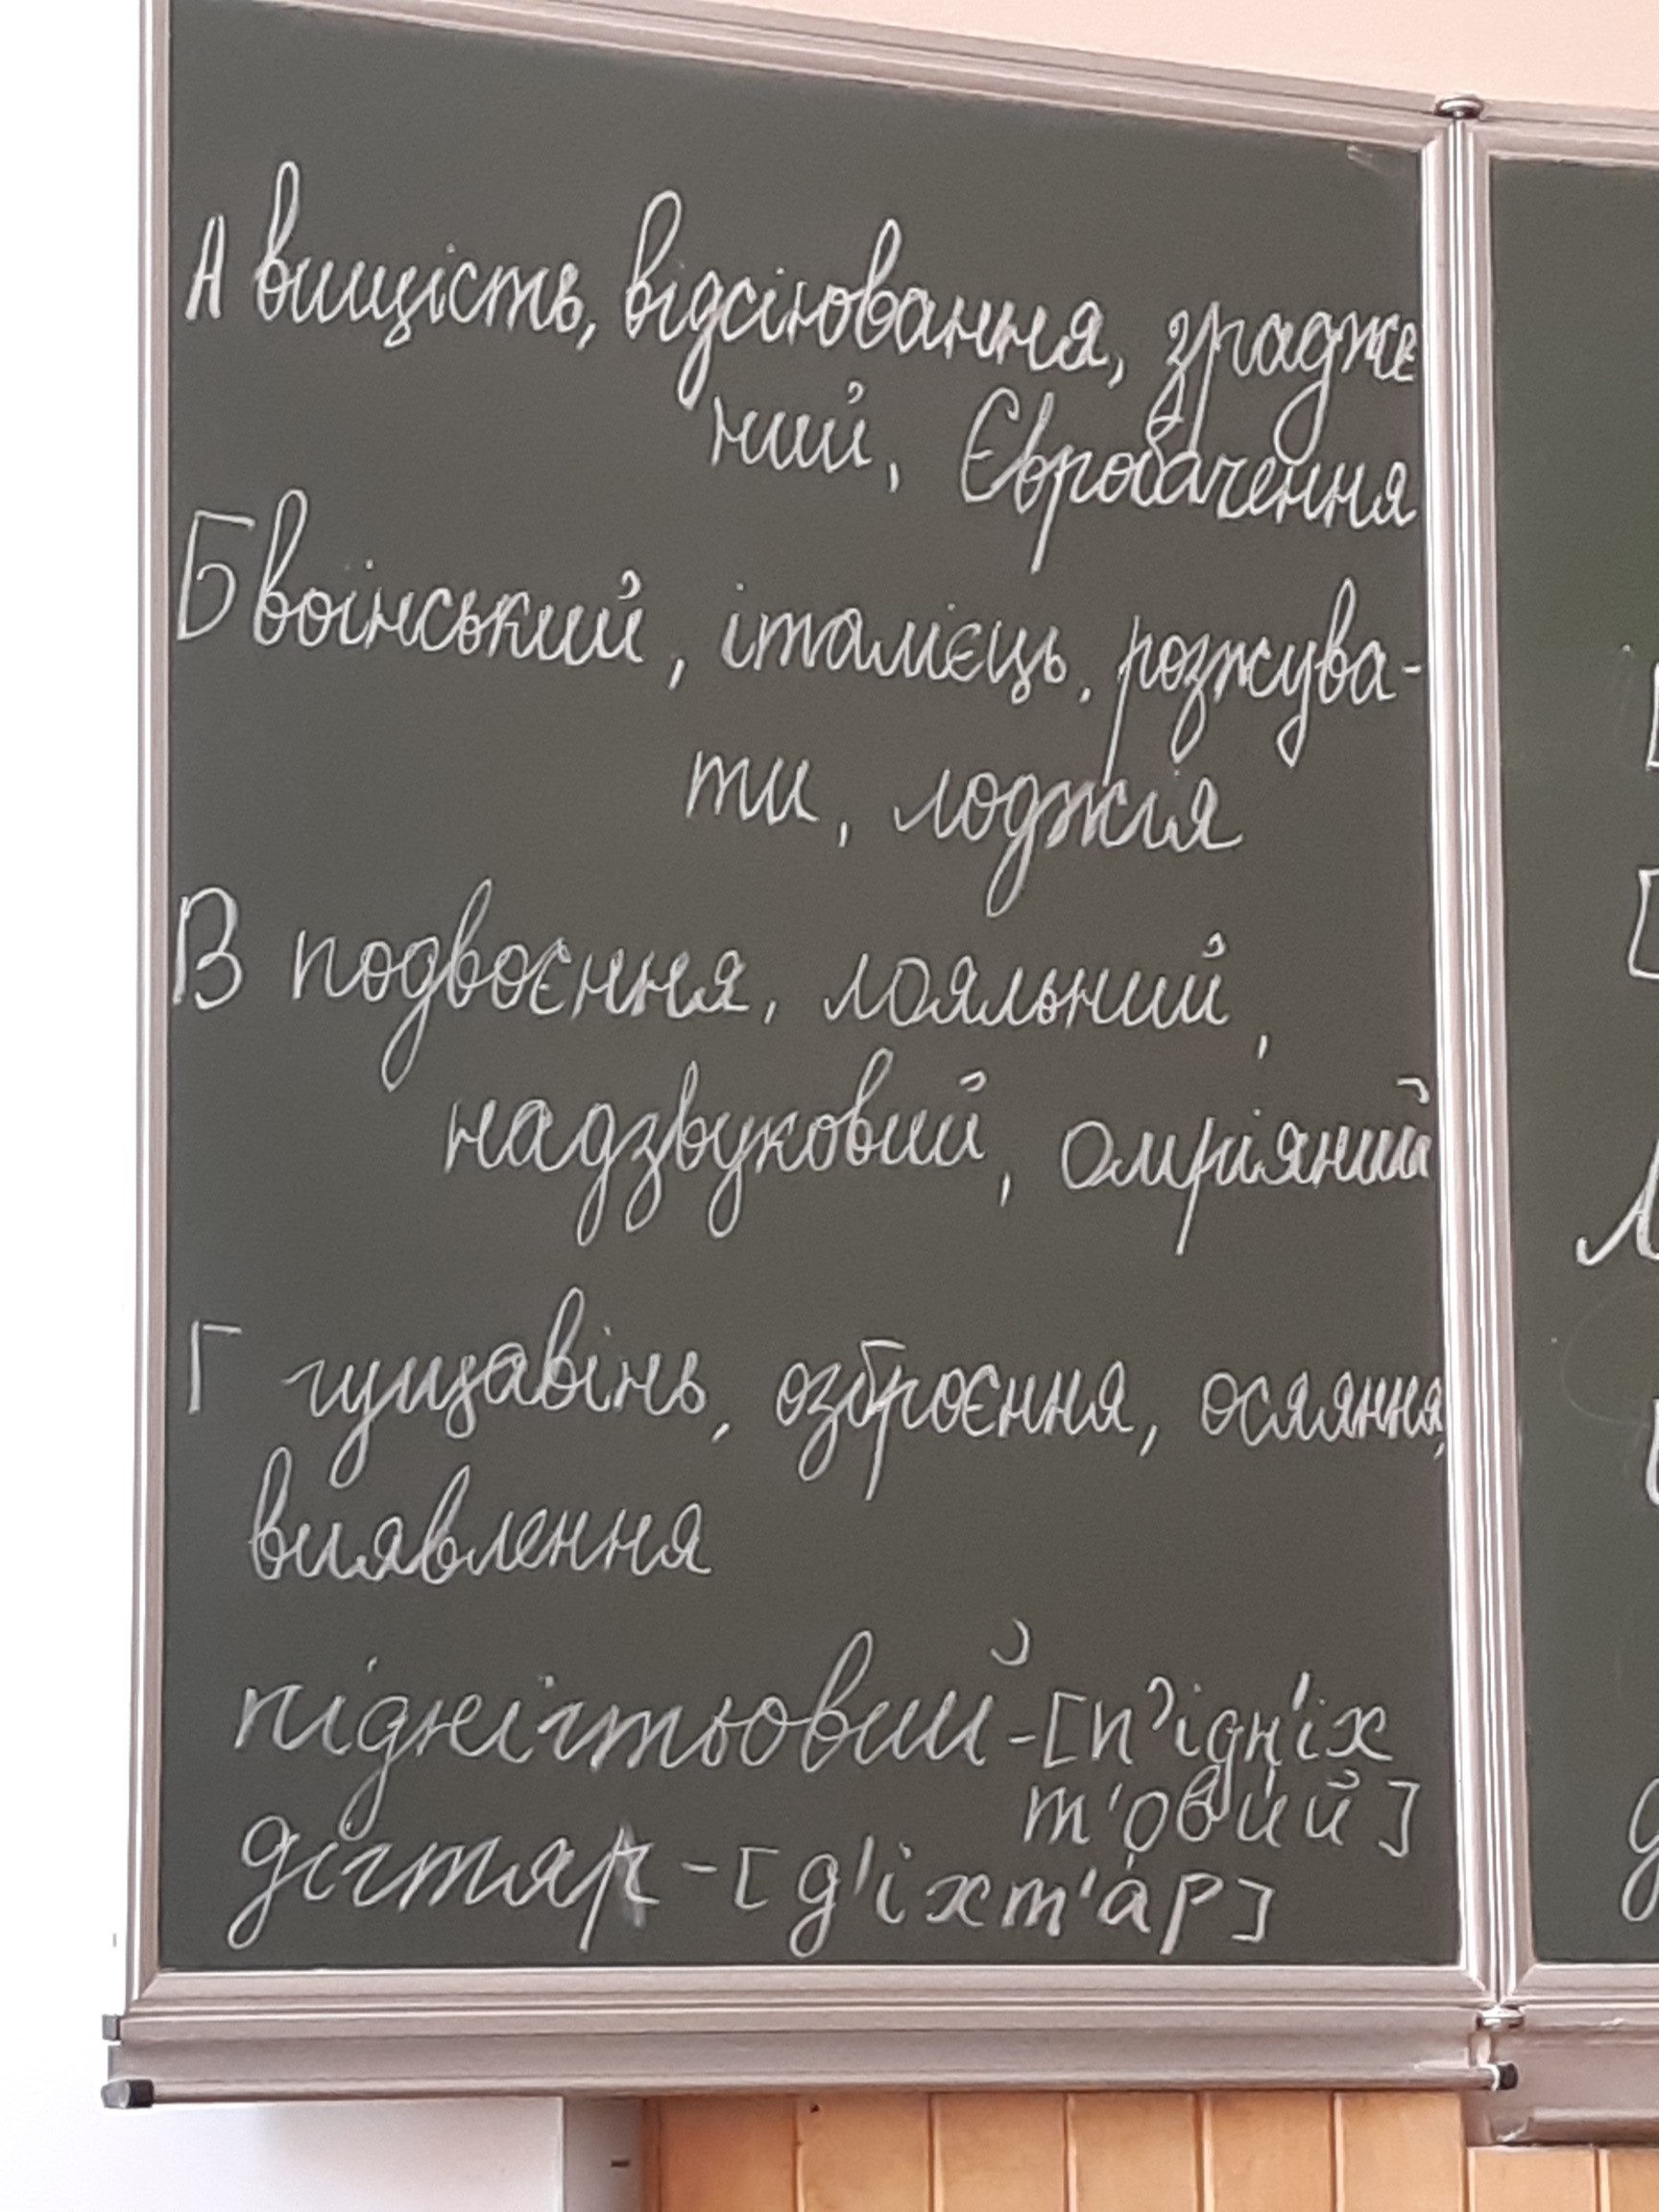 А вищість, відсіювання, зрадже
ний, Євробачення
Б воїнський, італієць, розжува-
ти, лоджія
В подвоєння, лояльний,
надзвуковий, омріяний
Г гущавінь, озброєння, осяяння,
виявлення
піднігтьовий - [п’ідн'іх
т'овий]
дігтяр - [д'іхт'ар]